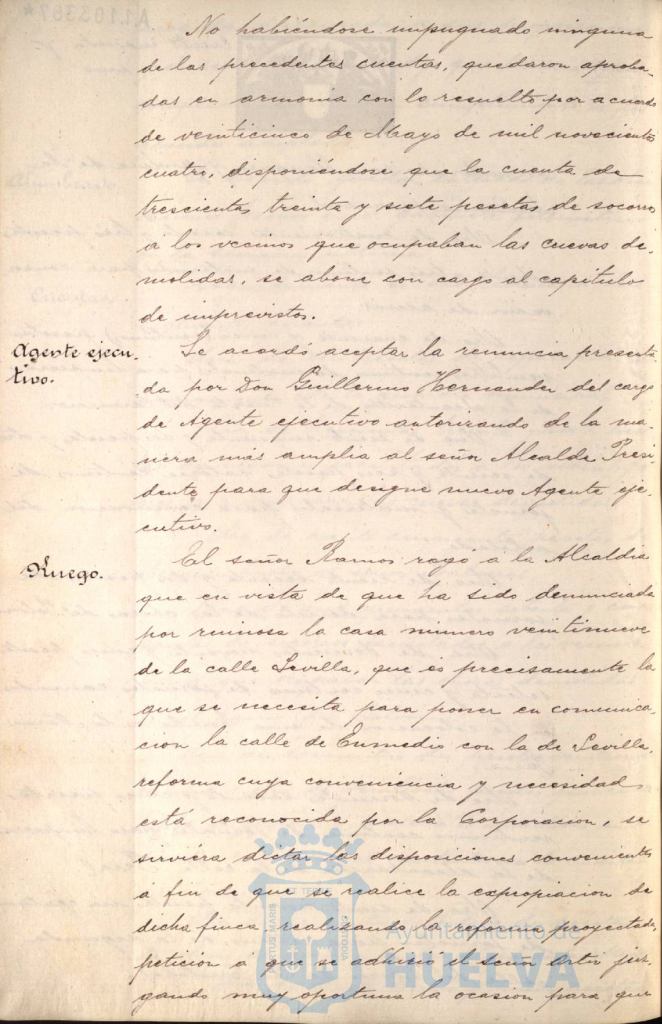 No habiéndose impugnado ninguna
de las precedentes cuentas, quedaron aproba-
das en armonia con lo resuelto por acuerdo
de veinticinco de Mayo de mil novecientos
cuatro, disponiéndose que la cuenta de
trescientas treinta y siete pesetas de socorro
á los vecinos que ocupaban las cuevas de-
molidas, se abone con cargo al capitulo
de imprevistos.
Agente ejecu-
tivo.
Se acordó aceptar la renuncia presenta-
da por Don Guillermo Hernandez del cargo
de Agente ejecutivo autorizando de la ma-
nera más amplia al señor Alcalde Presi-
dente para que designe nuevo Agente eje-
cutivo.
Ruego.
El señor Ramos rogó á la Alcaldia
que en vista de que ha sido denunciada
por ruinosa la casa número veintinueve
de la calle Sevilla, que és precisamente la
que se necesita para poner en comunica-
cion la calle de Enmedio con la de Sevilla,
reforma cuya conveniencia y necesidad
está reconocida por la Corporacion, se
sirviera dictar las disposiciones convenientes
a fin de que se realice la expropiacion de
dicha finca realizando la reforma proyectada,
peticion á que se adhirió el señor juz-
gando muy oportuna la ocasion para que
Ayuntamiento de
HUELVA